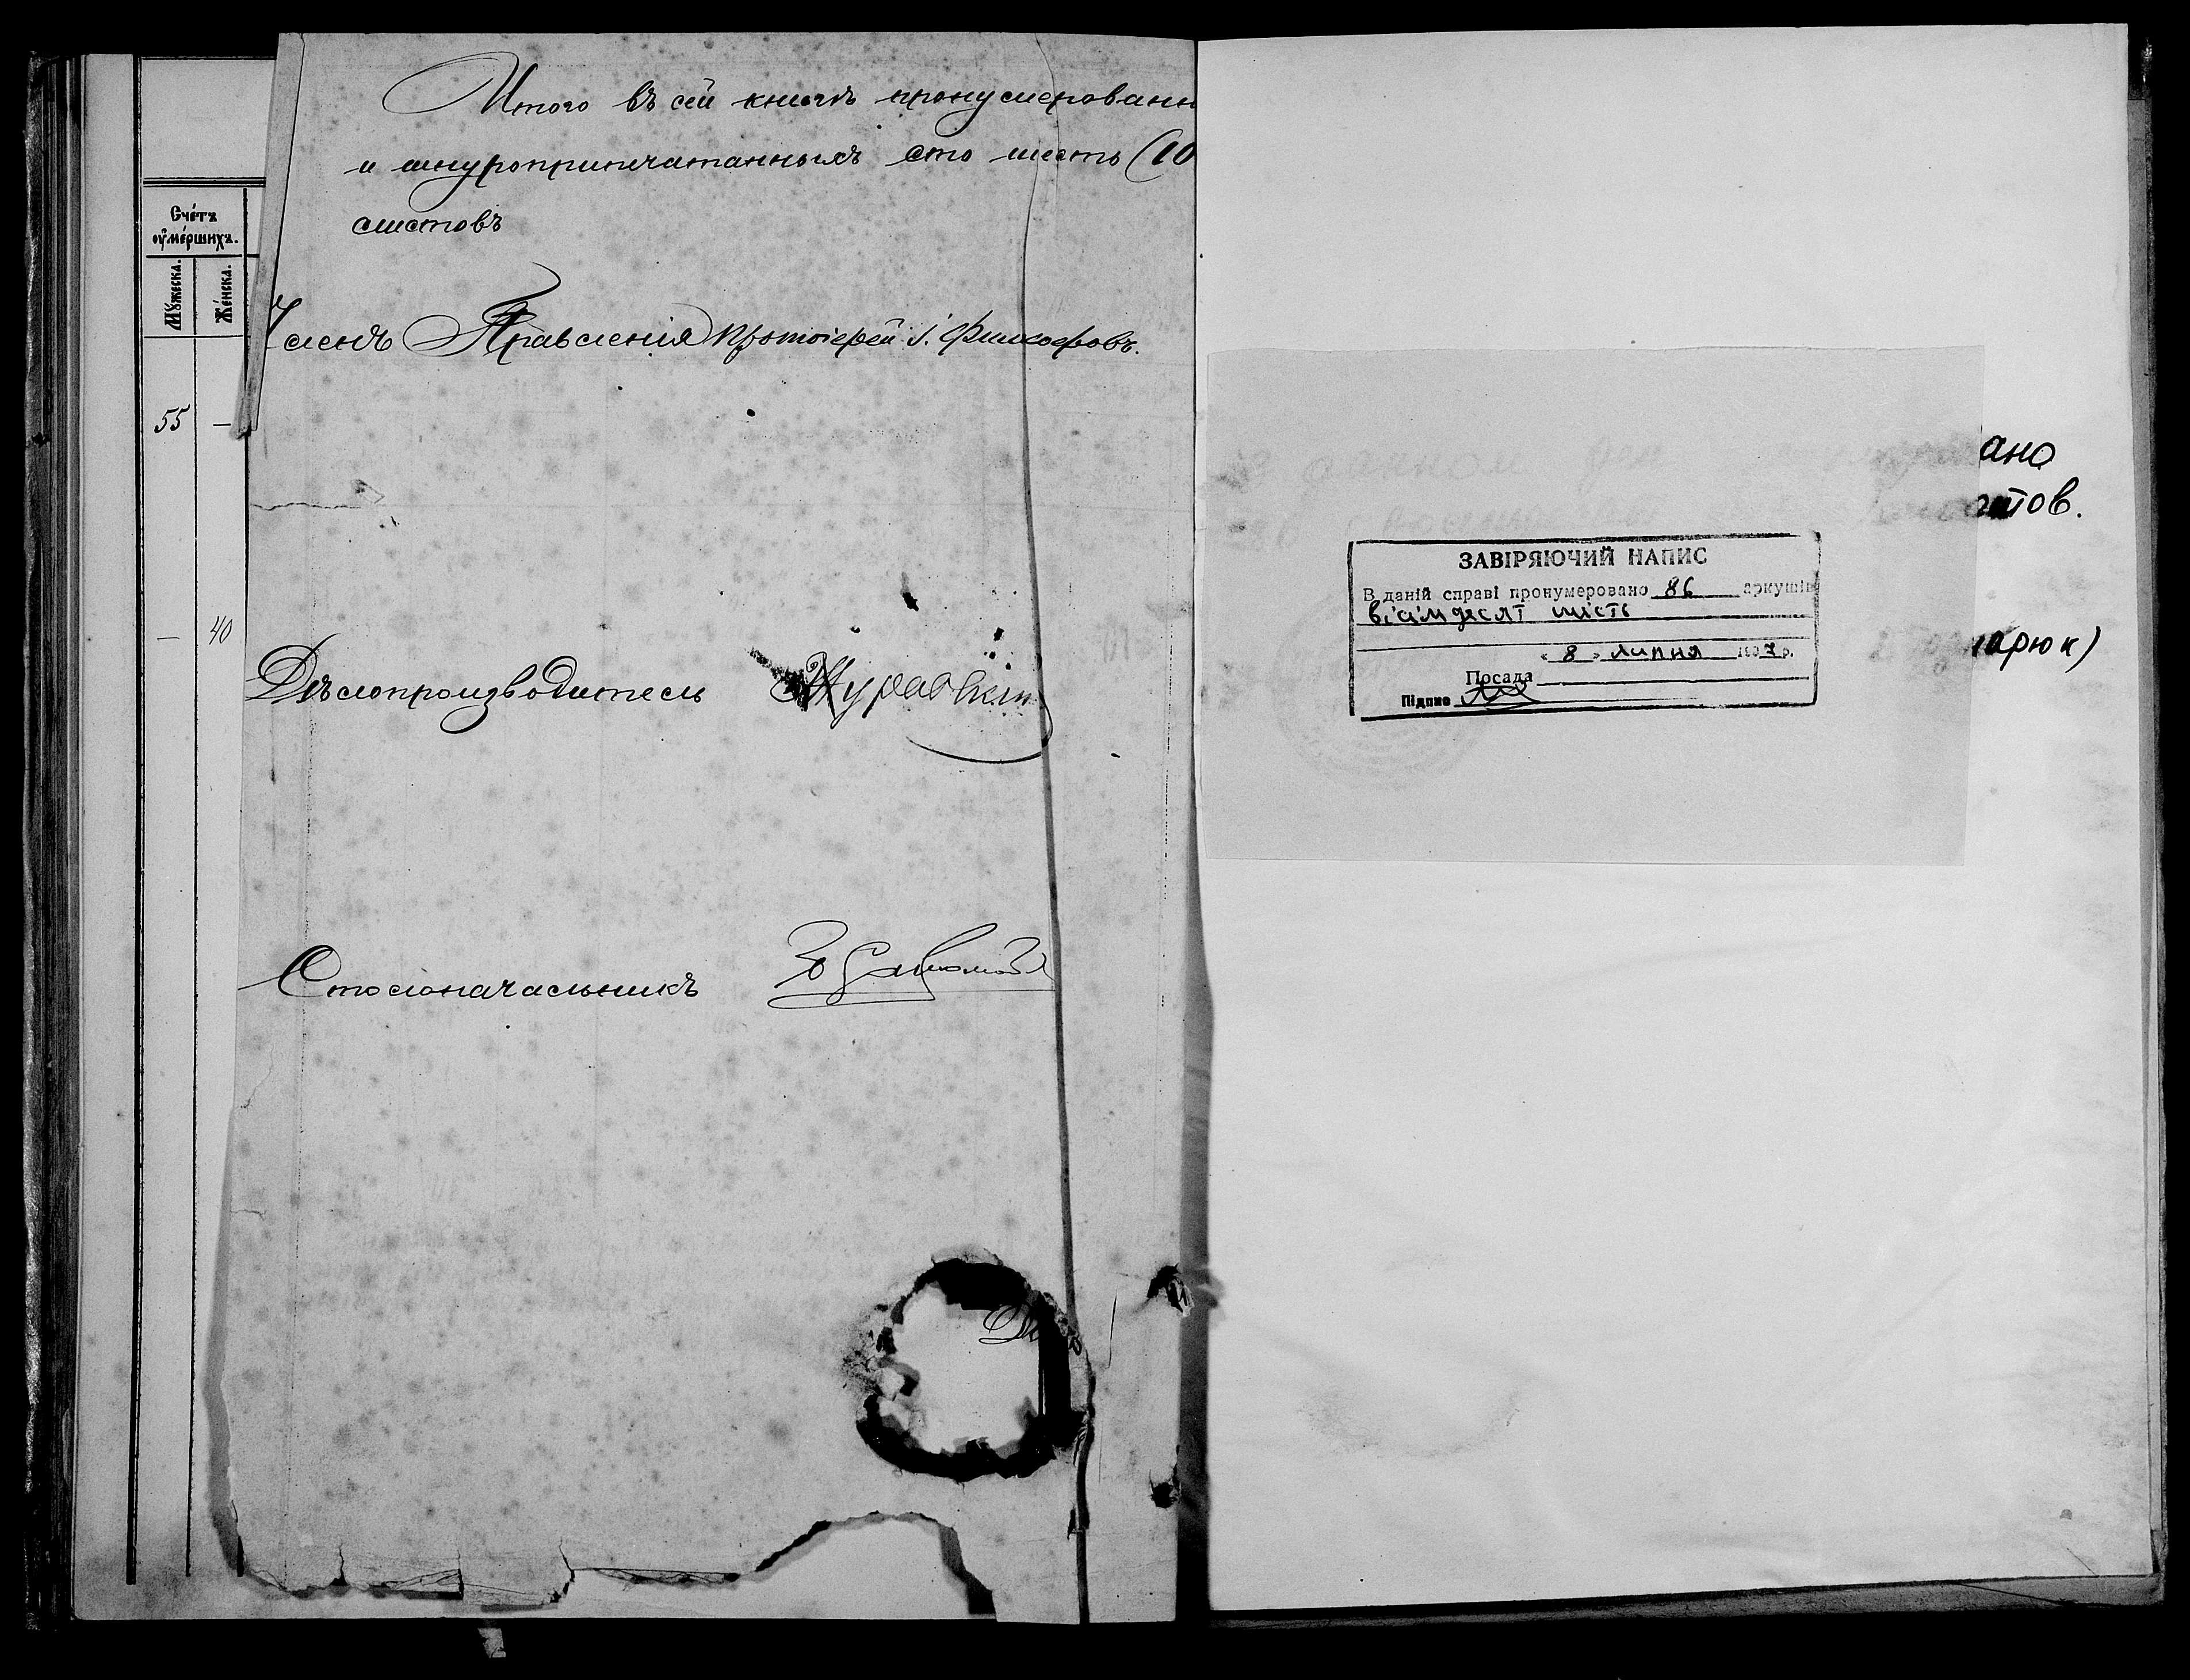 Счётъ
оумершихъ.
Мужеска.
Женска.
55 —
— 40
Итого въ сей книгѣ пронумерованн
и шнуроприпечатанныхъ сто шесть (10
листовъ
Членъ Правленія Протоіерей І. Философовъ.
Дѣлопроизводитель
Столоначальникъ
ано
тов.
ЗАВІРЯЮЧИЙ НАПИС
В даній справі пронумеровано 86 аркушів
вісімдесят шість
« 8 » липня
Посада
Підпис
арюк)